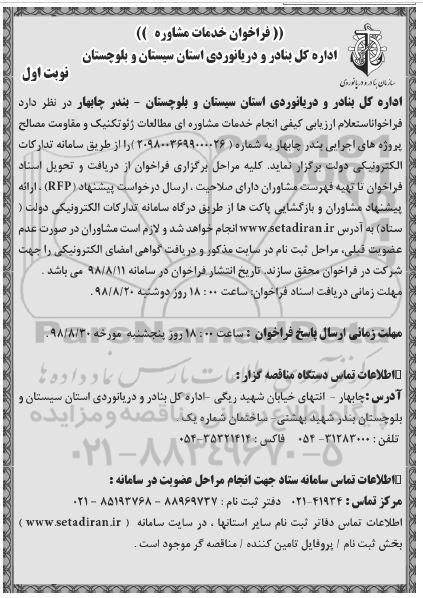 (( فراخوان خدمات مشاوره ))
اداره کل بنادر و دریانوردی استان سیستان و بلوچستان
نوبت اول
سازمان بنادر و دریانوردی
اداره کل بنادر و دریانوردی استان سیستان و بلوچستان - بندر چابهار در نظر دارد
فراخوان‌استعلام ارزیابی کیفی انجام خدمات مشاوره ای مطالعات ژئوتکنیک و مقاومت مصالح
پروژه های اجرایی بندر چابهار به شماره ( ۲۰۹۸۰۰۳۶۹۹۰۰۰۰۲۶ ) را از طریق سامانه تدارکات
الکترونیکی دولت برگزار نماید. کلیه مراحل برگزاری فراخوان از دریافت و تحویل اسناد
فراخوان تا تهیه فهرست مشاوران دارای صلاحیت ، ارسال درخواست پیشنهاد (RFP) ، ارائه
پیشنهاد مشاوران و بازگشایی پاکت ها از طریق درگاه سامانه تدارکات الکترونیکی دولت (
ستاد) به آدرس www.setadiran.ir انجام خواهد شد و لازم است مشاوران در صورت عدم
عضویت قبلی، مراحل ثبت نام در سایت مذکور و دریافت گواهی امضای الکترونیکی را جهت
شرکت در فراخوان محقق سازند. تاریخ انتشار فراخوان در سامانه ۹۸/۸/۱۱ می باشد .
مهلت زمانی دریافت اسناد فراخوان: ساعت ۱۸:۰۰ روز دوشنبه ۹۸/۸/۲۰ .
مهلت زمانی ارسال پاسخ فراخوان : ساعت ۱۸:۰۰ روز پنجشنبه مورخه ۹۸/۸/۳۰ .
اطلاعات تماس دستگاه مناقصه گزار :
آدرس :چابهار - انتهای خیابان شهید ریگی -اداره کل بنادر و دریانوردی استان سیستان و
بلوچستان بندر شهید بهشتی- ساختمان شماره یک .
تلفن : ۳۱۲۸۳۰۰۰-۰۵۴ فاکس : ۳۵۳۲۱۴۱۴-۰۵۴
اطلاعات تماس سامانه ستاد جهت انجام مراحل عضویت در سامانه :
مرکز تماس : ۴۱۹۳۴-۰۲۱ دفتر ثبت نام : ۸۸۹۶۹۷۳۷ - ۸۵۱۹۳۷۶۸ - ۰۲۱
اطلاعات تماس دفاتر ثبت نام سایر استانها ، در سایت سامانه ( www.setadiran.ir )
بخش ثبت نام / پروفایل تامین کننده / مناقصه گر موجود است .
۰۲۱-۸۸۳۴۹۶۷۰-۵